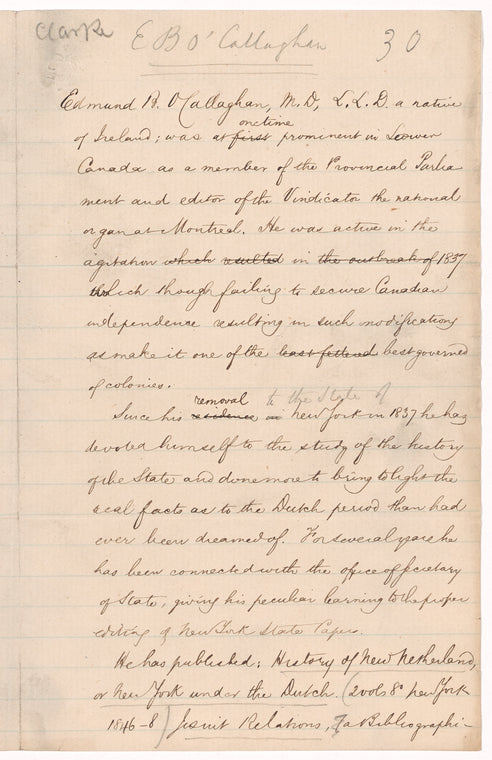 Clarke
E B O'Callaghan 30
Edmund B. O'Callaghan, M.D, L.L.D. a native
onetime
of Ireland; was at first prominent in Lower
Canada as a member of the Provincial Parlia
ment and editor of the Vindicator the national
organ at Montreal. He was active in the
agitation which resulted in the outbreak of 1837
which though failing to secure Canadian
independence resulting in such modifications
as make it one of the least fettered best governed
of colonies.
removal to the State of
Since his residence in New York in 1837 he has
devoted himself to the study of the history
of the State and done more to bring to light the
real facts as to the Dutch period than had
ever been dreamed of. For several years he
has been connected with the office of Secretary
of State, giving his peculiar learning to the proper
editing of New York State Papers.
He has published; History of New Netherland,
or New York under the Dutch. (2 vols 8° New York
1846-8) Jesuit Relations, a Bibliographi-